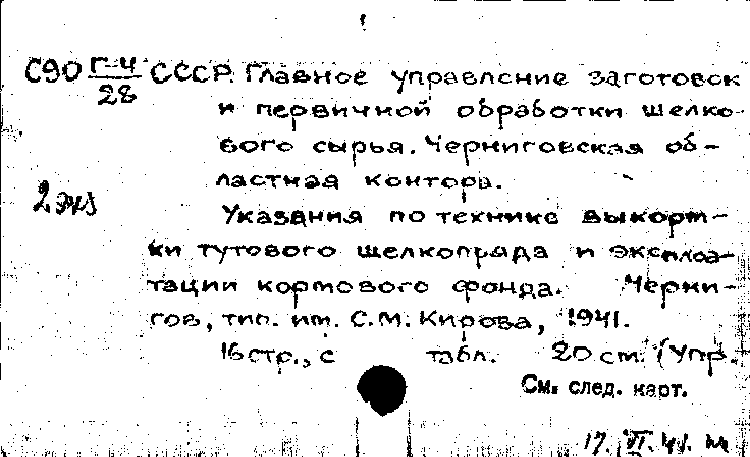 С90 Г-4/28 СССР. Главное управление заготовок
и первичной обработки шелко-
вого сырья. Черниговская об-
ластная контора.
2 экз
Указания по технике выкорм-
ки тутового шелкопряда и эксплоа-
тации кормового фонда. Черни-
гов, тип. им. С.М. Кирова, 1941.
16 стр., с табл. 20 см. (Упр.
См. след. карт.
17. VI. 41.